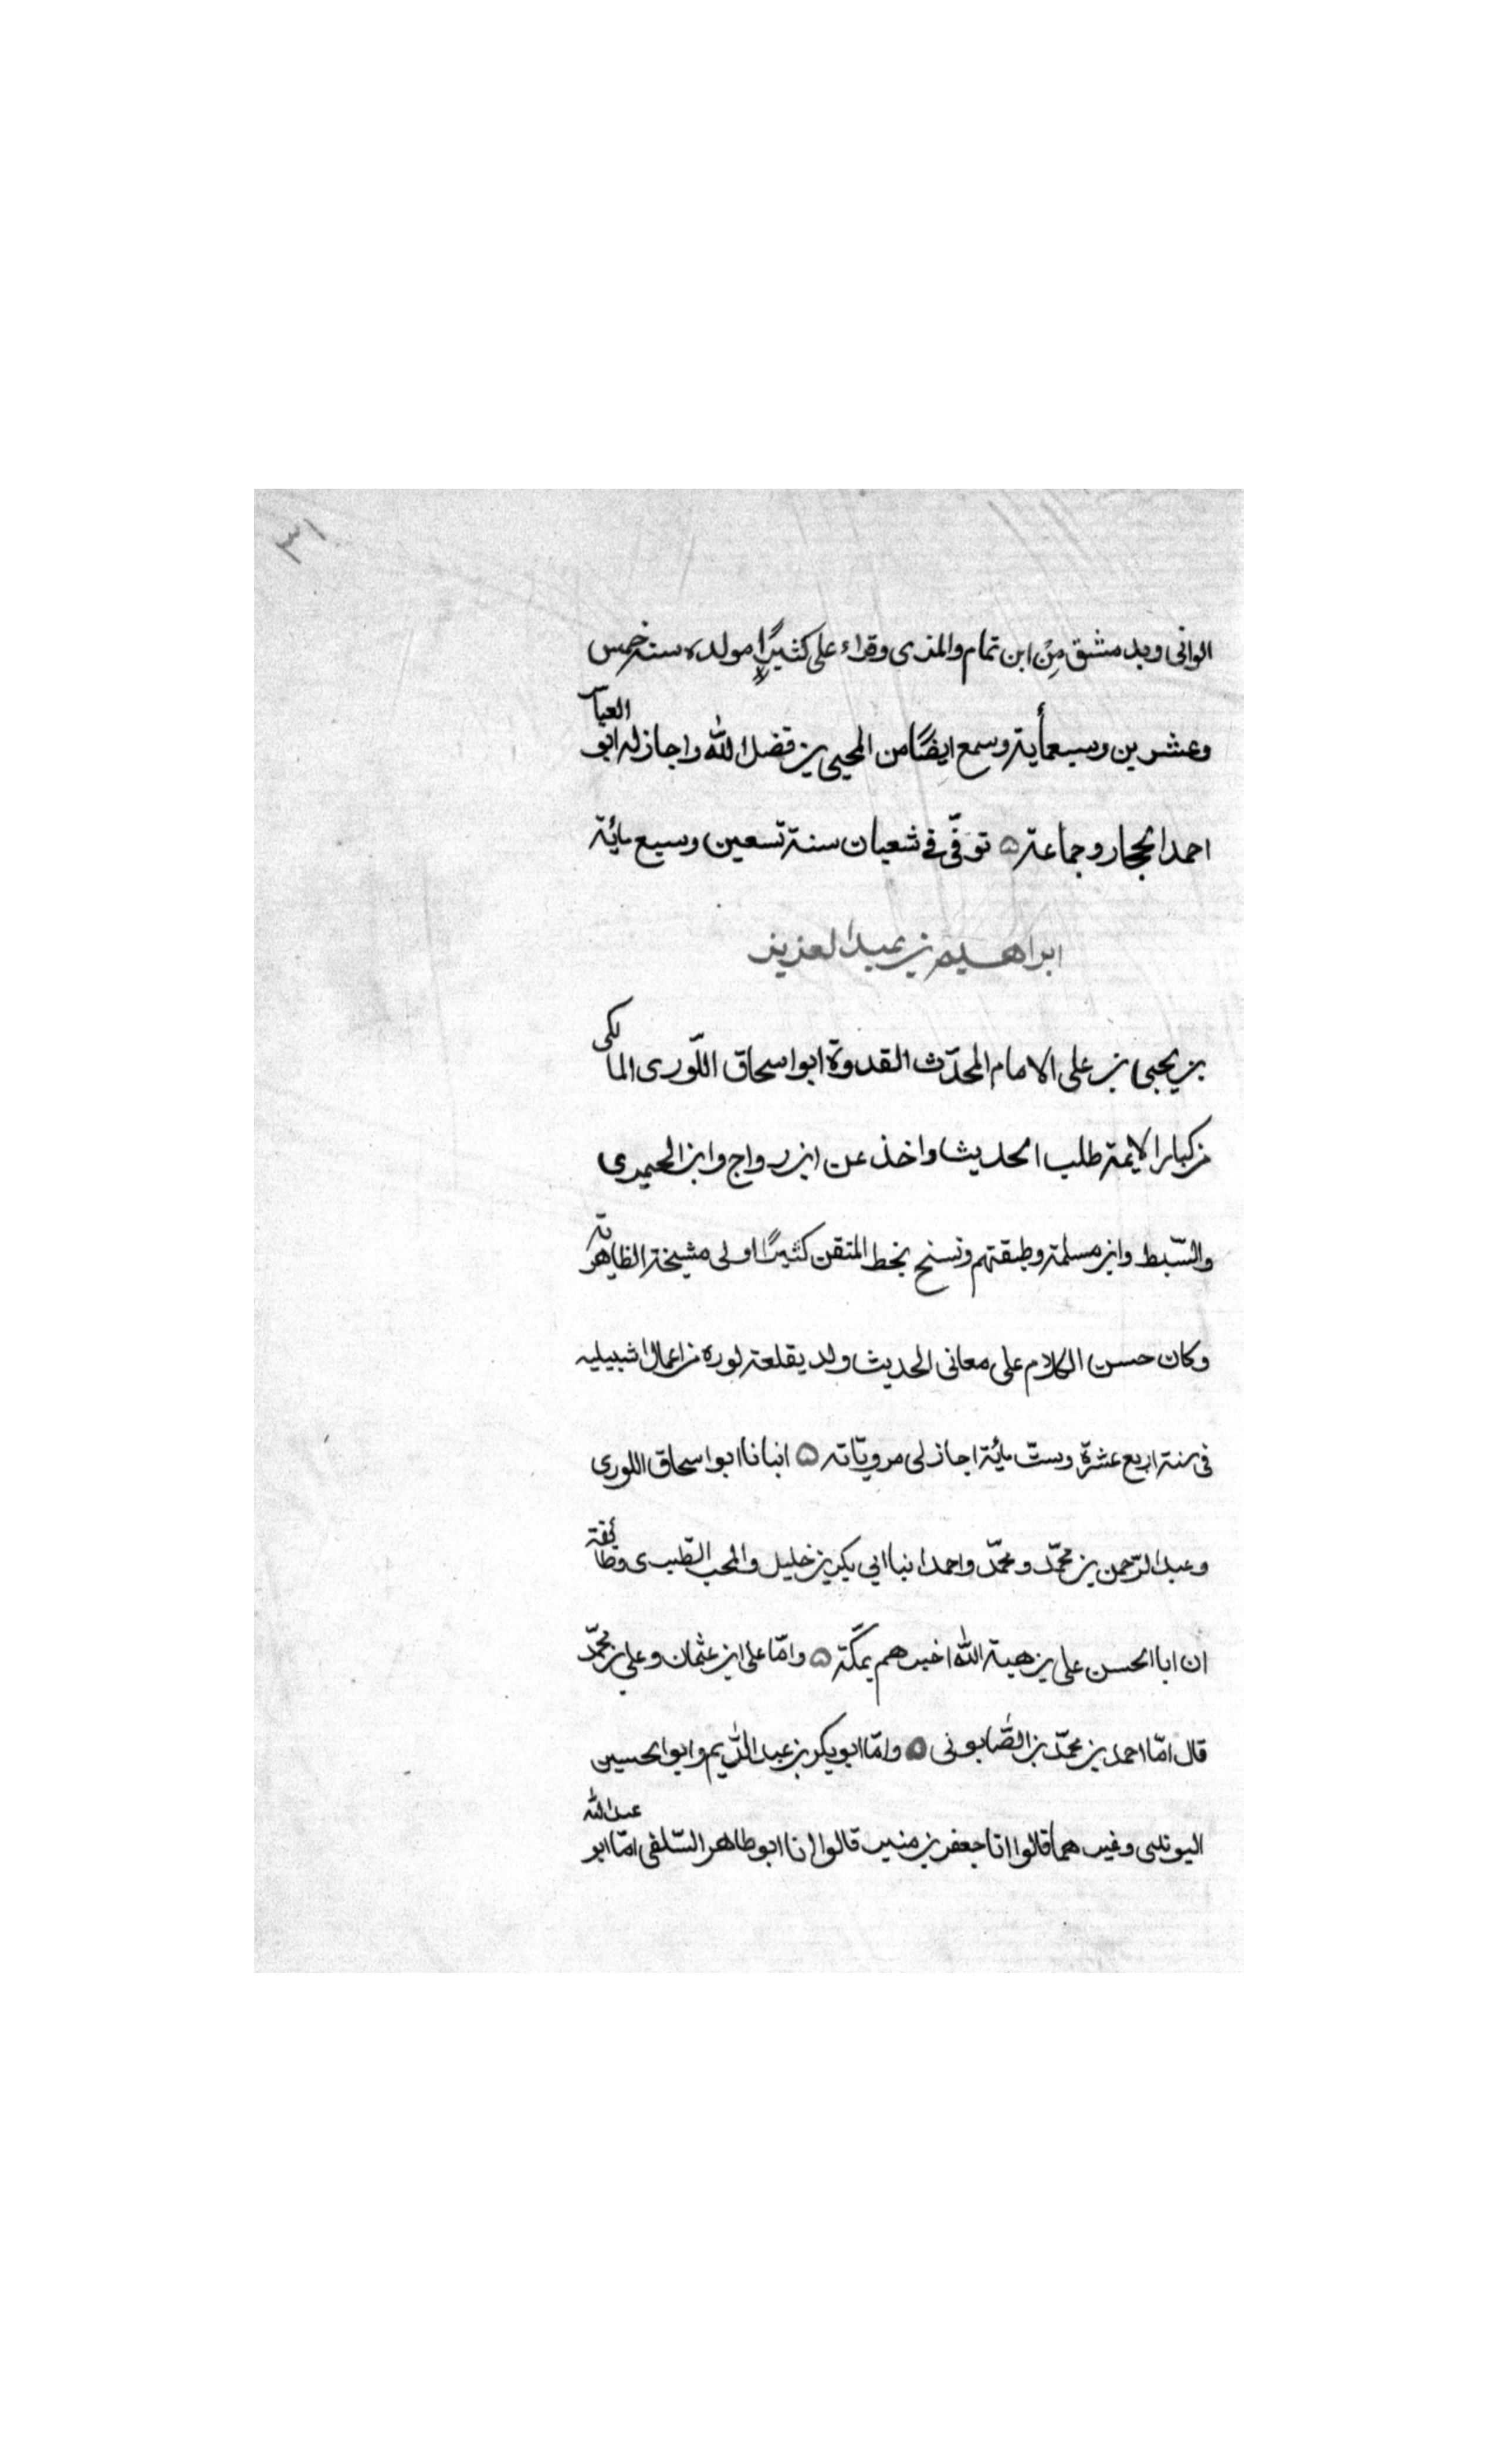 ٣١
الوانى وبدمشق مِن ابن تمام والمزى وقراء على كثيرًا مولده سنة خمس
وعشرين وسبعمأية وسمع ايضًا من المحيى بن فضل الله واجاز له ابو العباس
احمد الحجار وجماعة ه توفّى فى شعبان سنة تسعين وسبع مائة
ابراهيم بن عبد العزيز
بن يحيى بن على الامام المحدّث القدوة ابو اسحاق اللّورى المالكى
من كبار الايمة طلب الحديث واخذ عن ابن رواج وابن الحميرى
والسّبط وابن مسلمة وطبقتهم ونسخ بخط المتقن كثيرًا ولى مشيخة الظاهرية
وكان حسن الكلام على معانى الحديث ولد بقلعة لوره من اعمال اشبيليه
فى سنة اربع عشرة وستّ مائة اجاز لى مرويّاته ه انبانا ابو اسحاق اللورى
وعبد الرّحمن بن محمّد ومحمّد واحمد انبا ابى بكر بن خليل والمحب الطّبرى وطائفة
ان ابا الحسن على بن هبة الله اخبرهم بمكّة ه وامّا على ابن عثمان وعلى بن محمّد
قال امّا احمد بن محمّد بن الصّابونى ه وامّا ابو بكر بن عبد الكريم وابو الحسين
اليونينى وغيرهما قالوا انا جعفر بن منير قالوا انا ابو طاهر السّلفى امّا ابو عبد الله